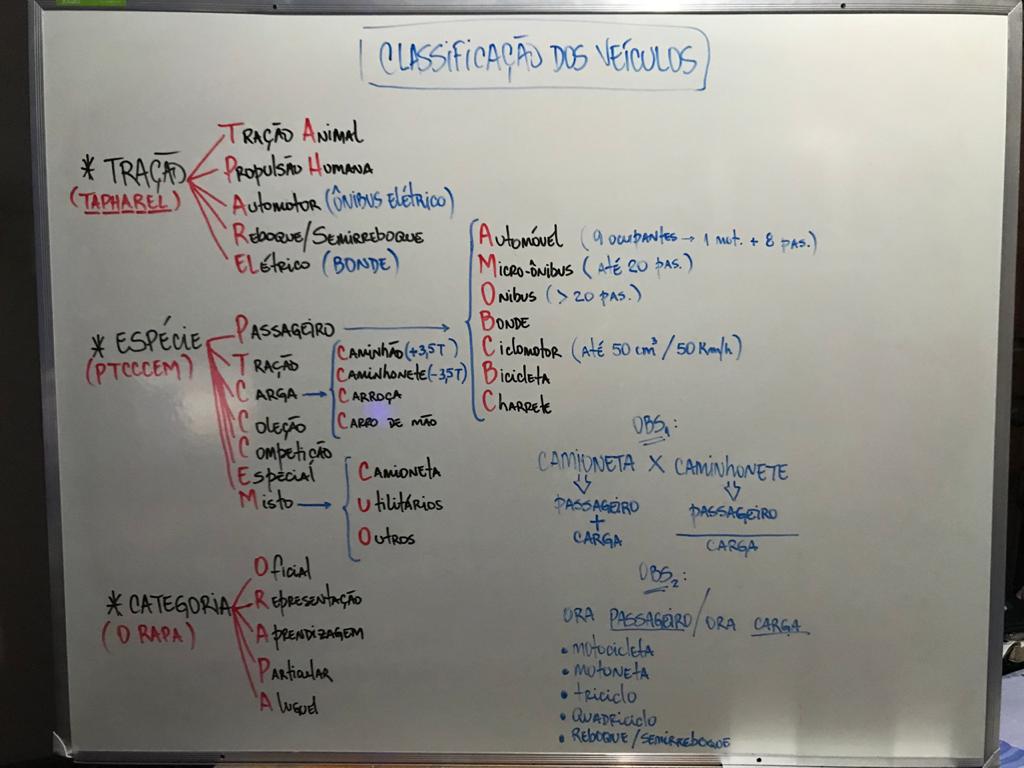 CLASSIFICAÇÃO DOS VEÍCULOS
* TRAÇÃO
(TAPHAREL)
TRAÇÃO ANIMAL
PROPULSÃO HUMANA
AUTOMOTOR (ÔNIBUS ELÉTRICO)
REBOQUE/SEMIRREBOQUE
ELÉTRICO (BONDE)
* ESPÉCIE
(PTCCCEM)
PASSAGEIRO
TRAÇÃO
CARGA
COLEÇÃO
COMPETIÇÃO
ESPECIAL
MISTO
AUTOMÓVEL (9 OCUPANTES → 1 MOT. + 8 PAS.)
MICRO-ÔNIBUS (ATÉ 20 PAS.)
ONIBUS (> 20 PAS.)
BONDE
CICLOMOTOR (ATÉ 50 cm³/50 Km/h)
BICICLETA
CHARRETE
CAMINHÃO (+3,5T)
CAMINHONETE (-3,5T)
CARROÇA
CARRO DE MÃO
CAMIONETA
UTILITÁRIOS
OUTROS
* CATEGORIA
(O RAPA)
OFICIAL
REPRESENTAÇÃO
APRENDIZAGEM
PARTICULAR
ALUGUEL
OBS1:
CAMIONETA X CAMINHONETE
PASSAGEIRO
+
CARGA
PASSAGEIRO
CARGA
OBS2:
ORA PASSAGEIRO/ORA CARGA
• MOTOCICLETA
• MOTONETA
• TRICICLO
• QUADRICICLO
• REBOQUE/SEMIRREBOQUE